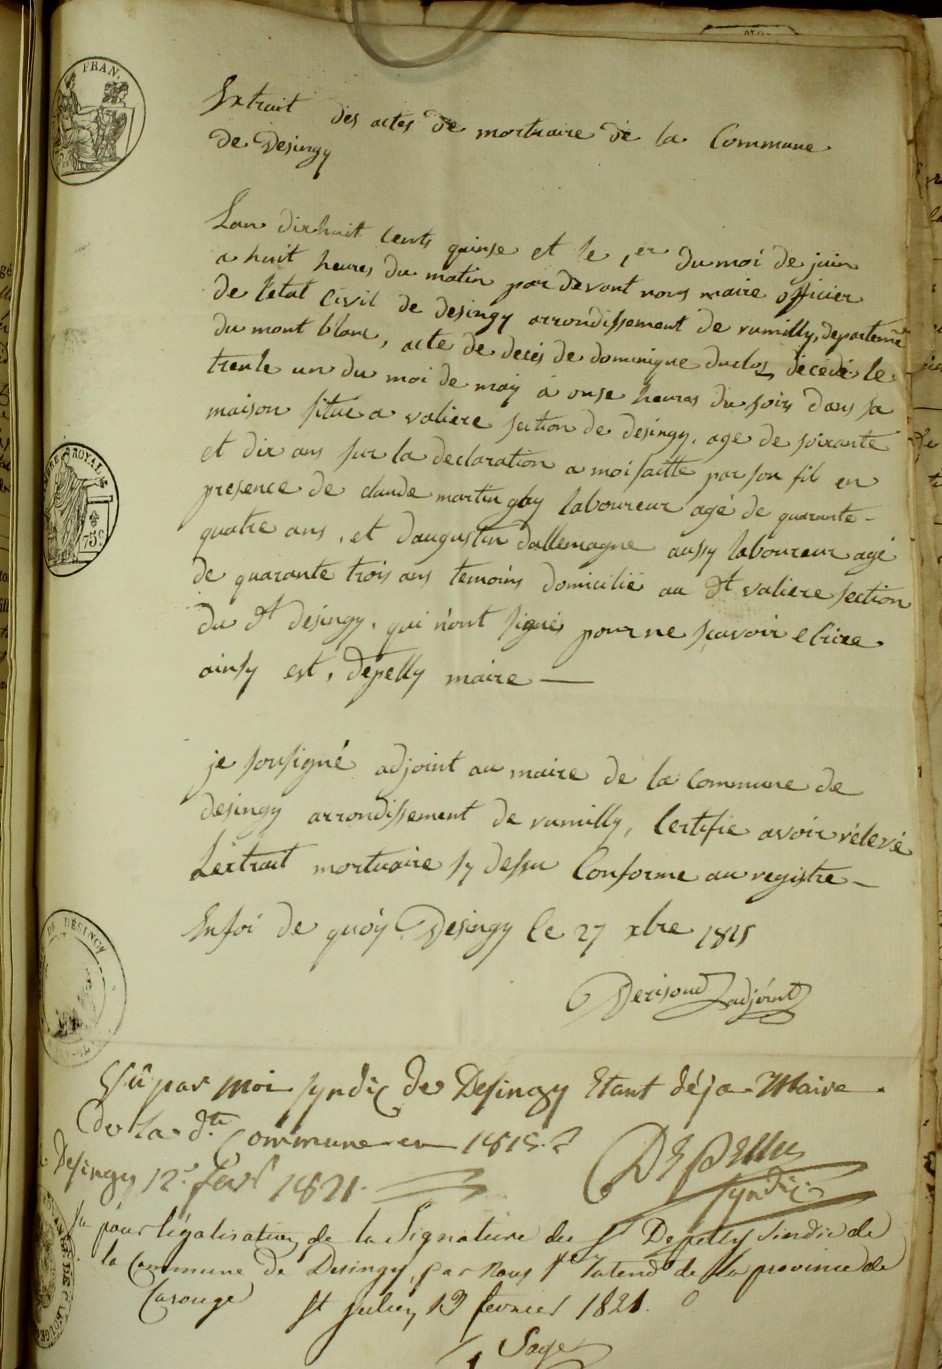 FRAN.
Extrait des actes de mortuaire de la Commune
de Desingy
Lan dixhuit cents quinse et le 1er du moi de juin
a huit heures du matin par devant nous maire officier
de letat Civil de desingy arrondissement de rumilly, departemt
du mont blanc, acte de decés de dominique duclos decédé le
trente un du moi de may a onse heures du soir dans sa
maison situe a valiere section de desingy, age de soixante
et dix ans sur la declaration a moi faitte par son fil en
presence de claude martin gby laboureur agé de quarante-
quatre ans, et daugustin dallemagne aussy laboureur agé
de quarante trois ans temoins domicilié au dt valiere section
du dt desingy, qui n'ont signés pour ne scavoir ecrire
ainsy est, depelly maire —
TIMBRE ROYAL
75c.
je sousigné adjoint au maire de la commune de
desingy arrondissement de rumilly, Certifie avoir rélevé
Léxtrait mortuaire sy dessu Conforme au registre —
Enfoi de quoy Desingy le 27 xbre 1815
Derisoud adjoint
DE DÉSINGY
Vû par moi syndic de Desingy Etant déja Maire
de la dte Commune en 1815.
Desingy 12 fevr 1821.
Depelly
syndic
Vu pour légalisation de la Signature du Sr Depelly Sindic de
la Commune de Desingy, par Nous Intendt de la province de
Carouge St Julien 13 fevrier 1821.